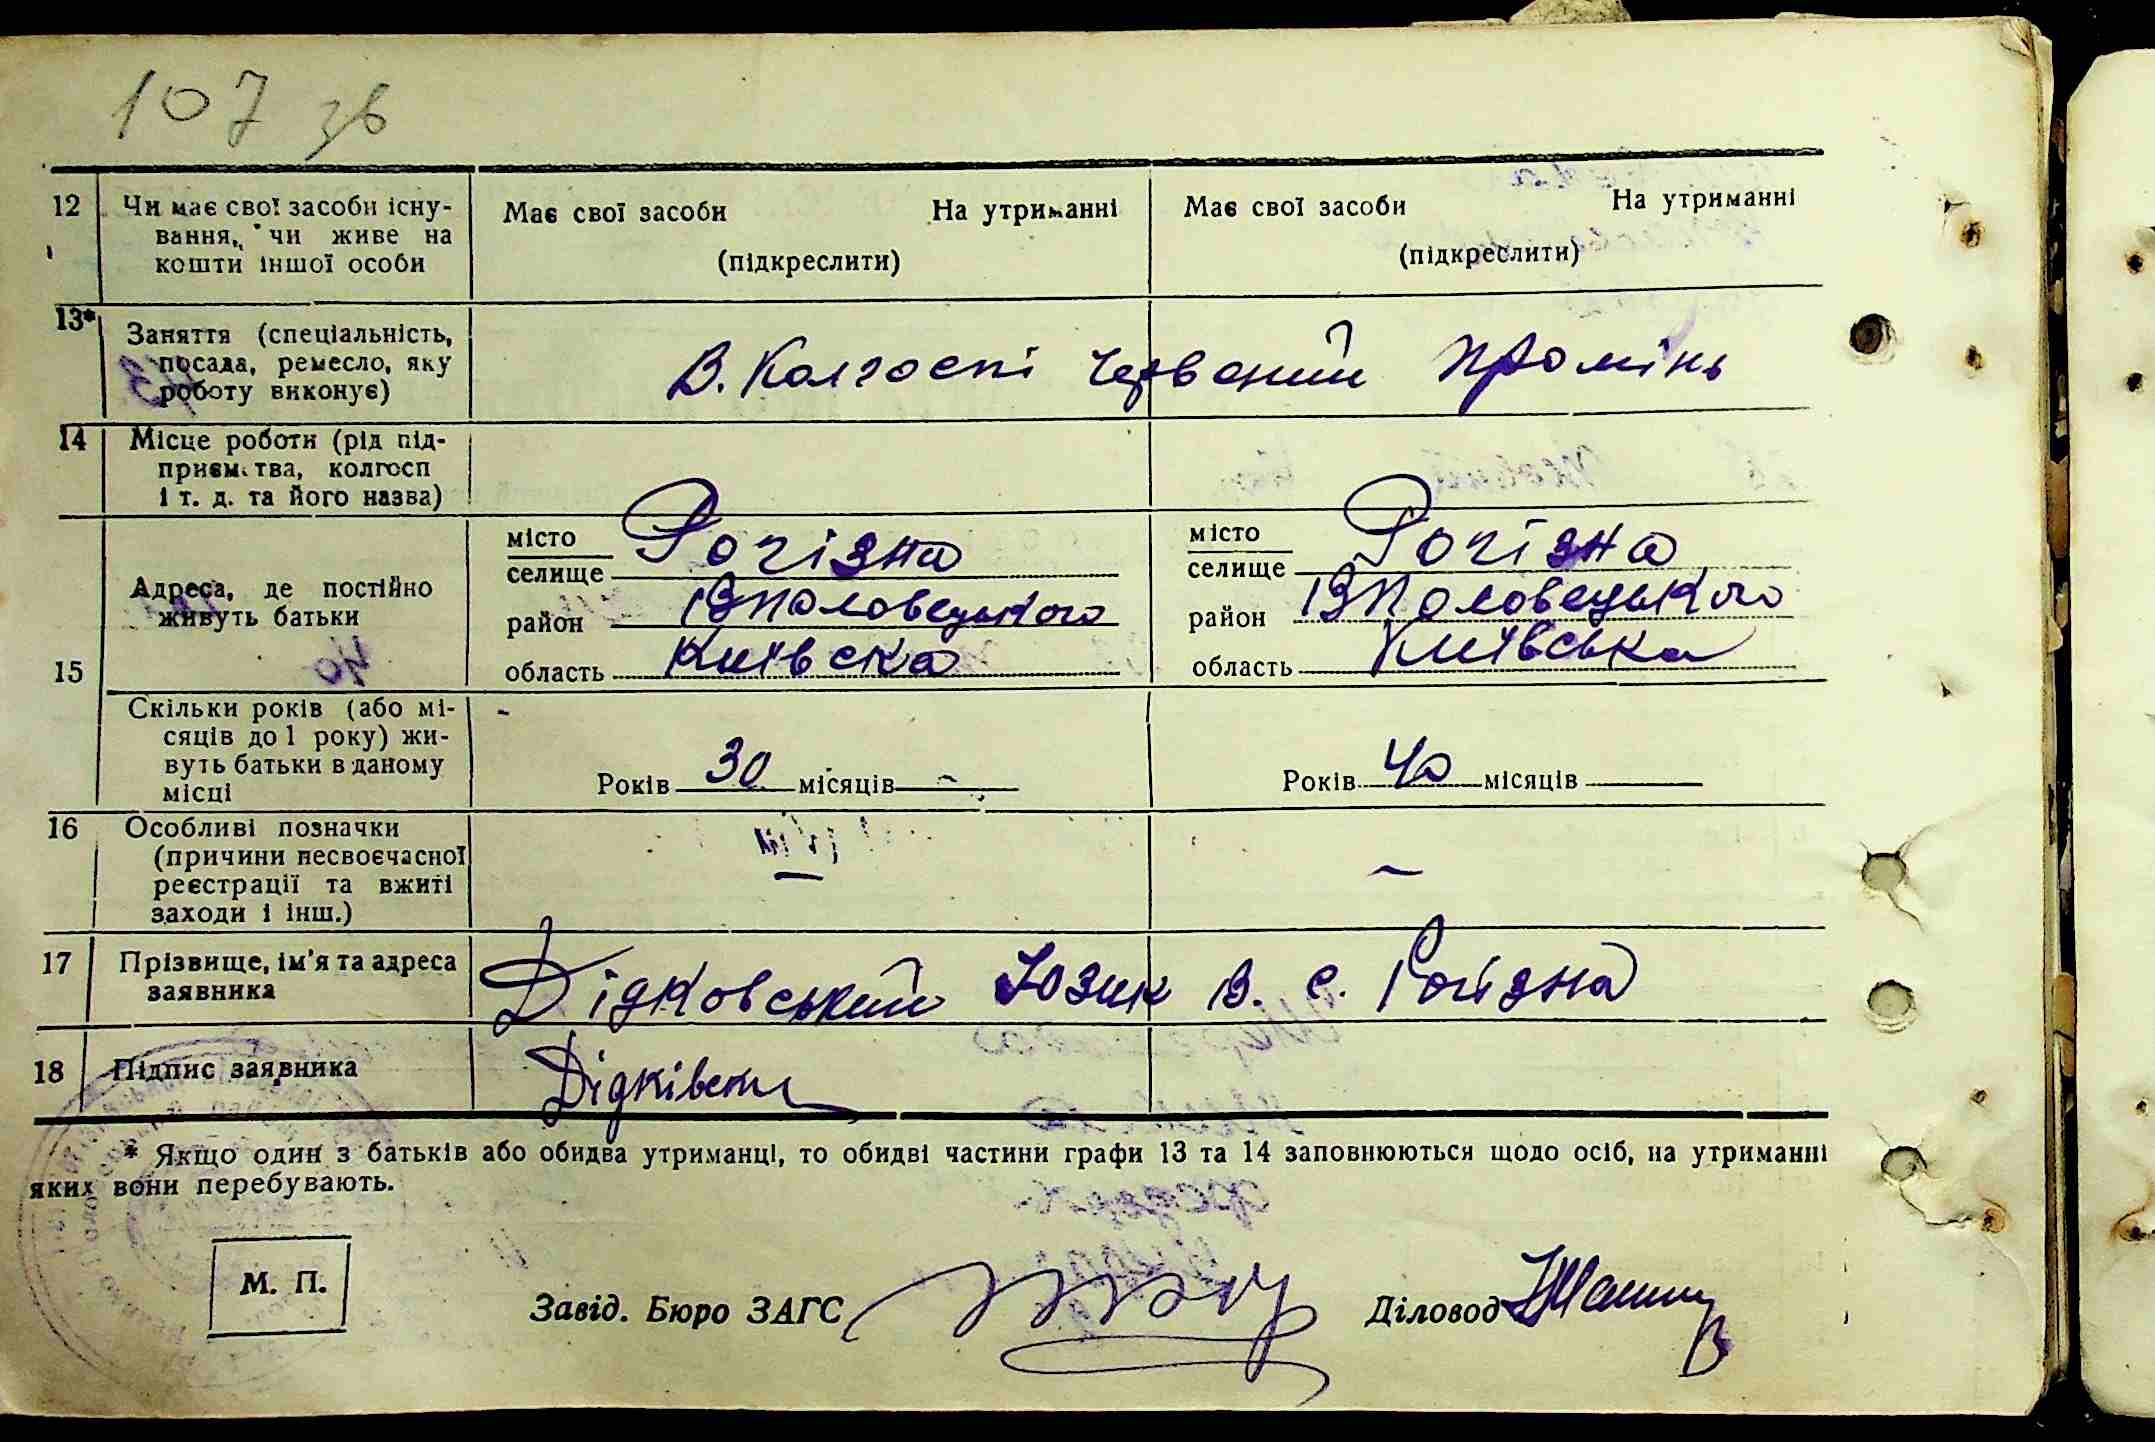 107 зв
12 Чи має свої засоби існу-
вання, чи живе на
кошти іншої особи
Має свої засоби На утриманні
(підкреслити)
Має свої засоби На утриманні
(підкреслити)
13* Заняття (спеціальність,
посада, ремесло, яку
роботу виконує)
В. Колгоспі Червоний Промінь
14 Місце роботи (рід під-
приємства, колгосп
і т. д. та його назва)
15 Адреса, де постійно
живуть батьки
місто
селище Рогізна
район ВПоловецького
область Київска
місто
селище Рогізна
район ВПоловецького
область Київська
Скільки років (або мі-
сяців до 1 року) жи-
вуть батьки в даному
місці
Років 30 місяців -
Років 40 місяців
16 Особливі позначки
(причини несвоєчасної
реєстрації та вжиті
заходи і інш.)
— —
17 Прізвище, ім'я та адреса
заявника
Дідковський Юзик В. с. Рогізна
18 Підпис заявника
Дідківськ
* Якщо один з батьків або обидва утриманці, то обидві частини графи 13 та 14 заповнюються щодо осіб, на утриманні
яких вони перебувають.
М. П.
Завід. Бюро ЗАГС
Діловод